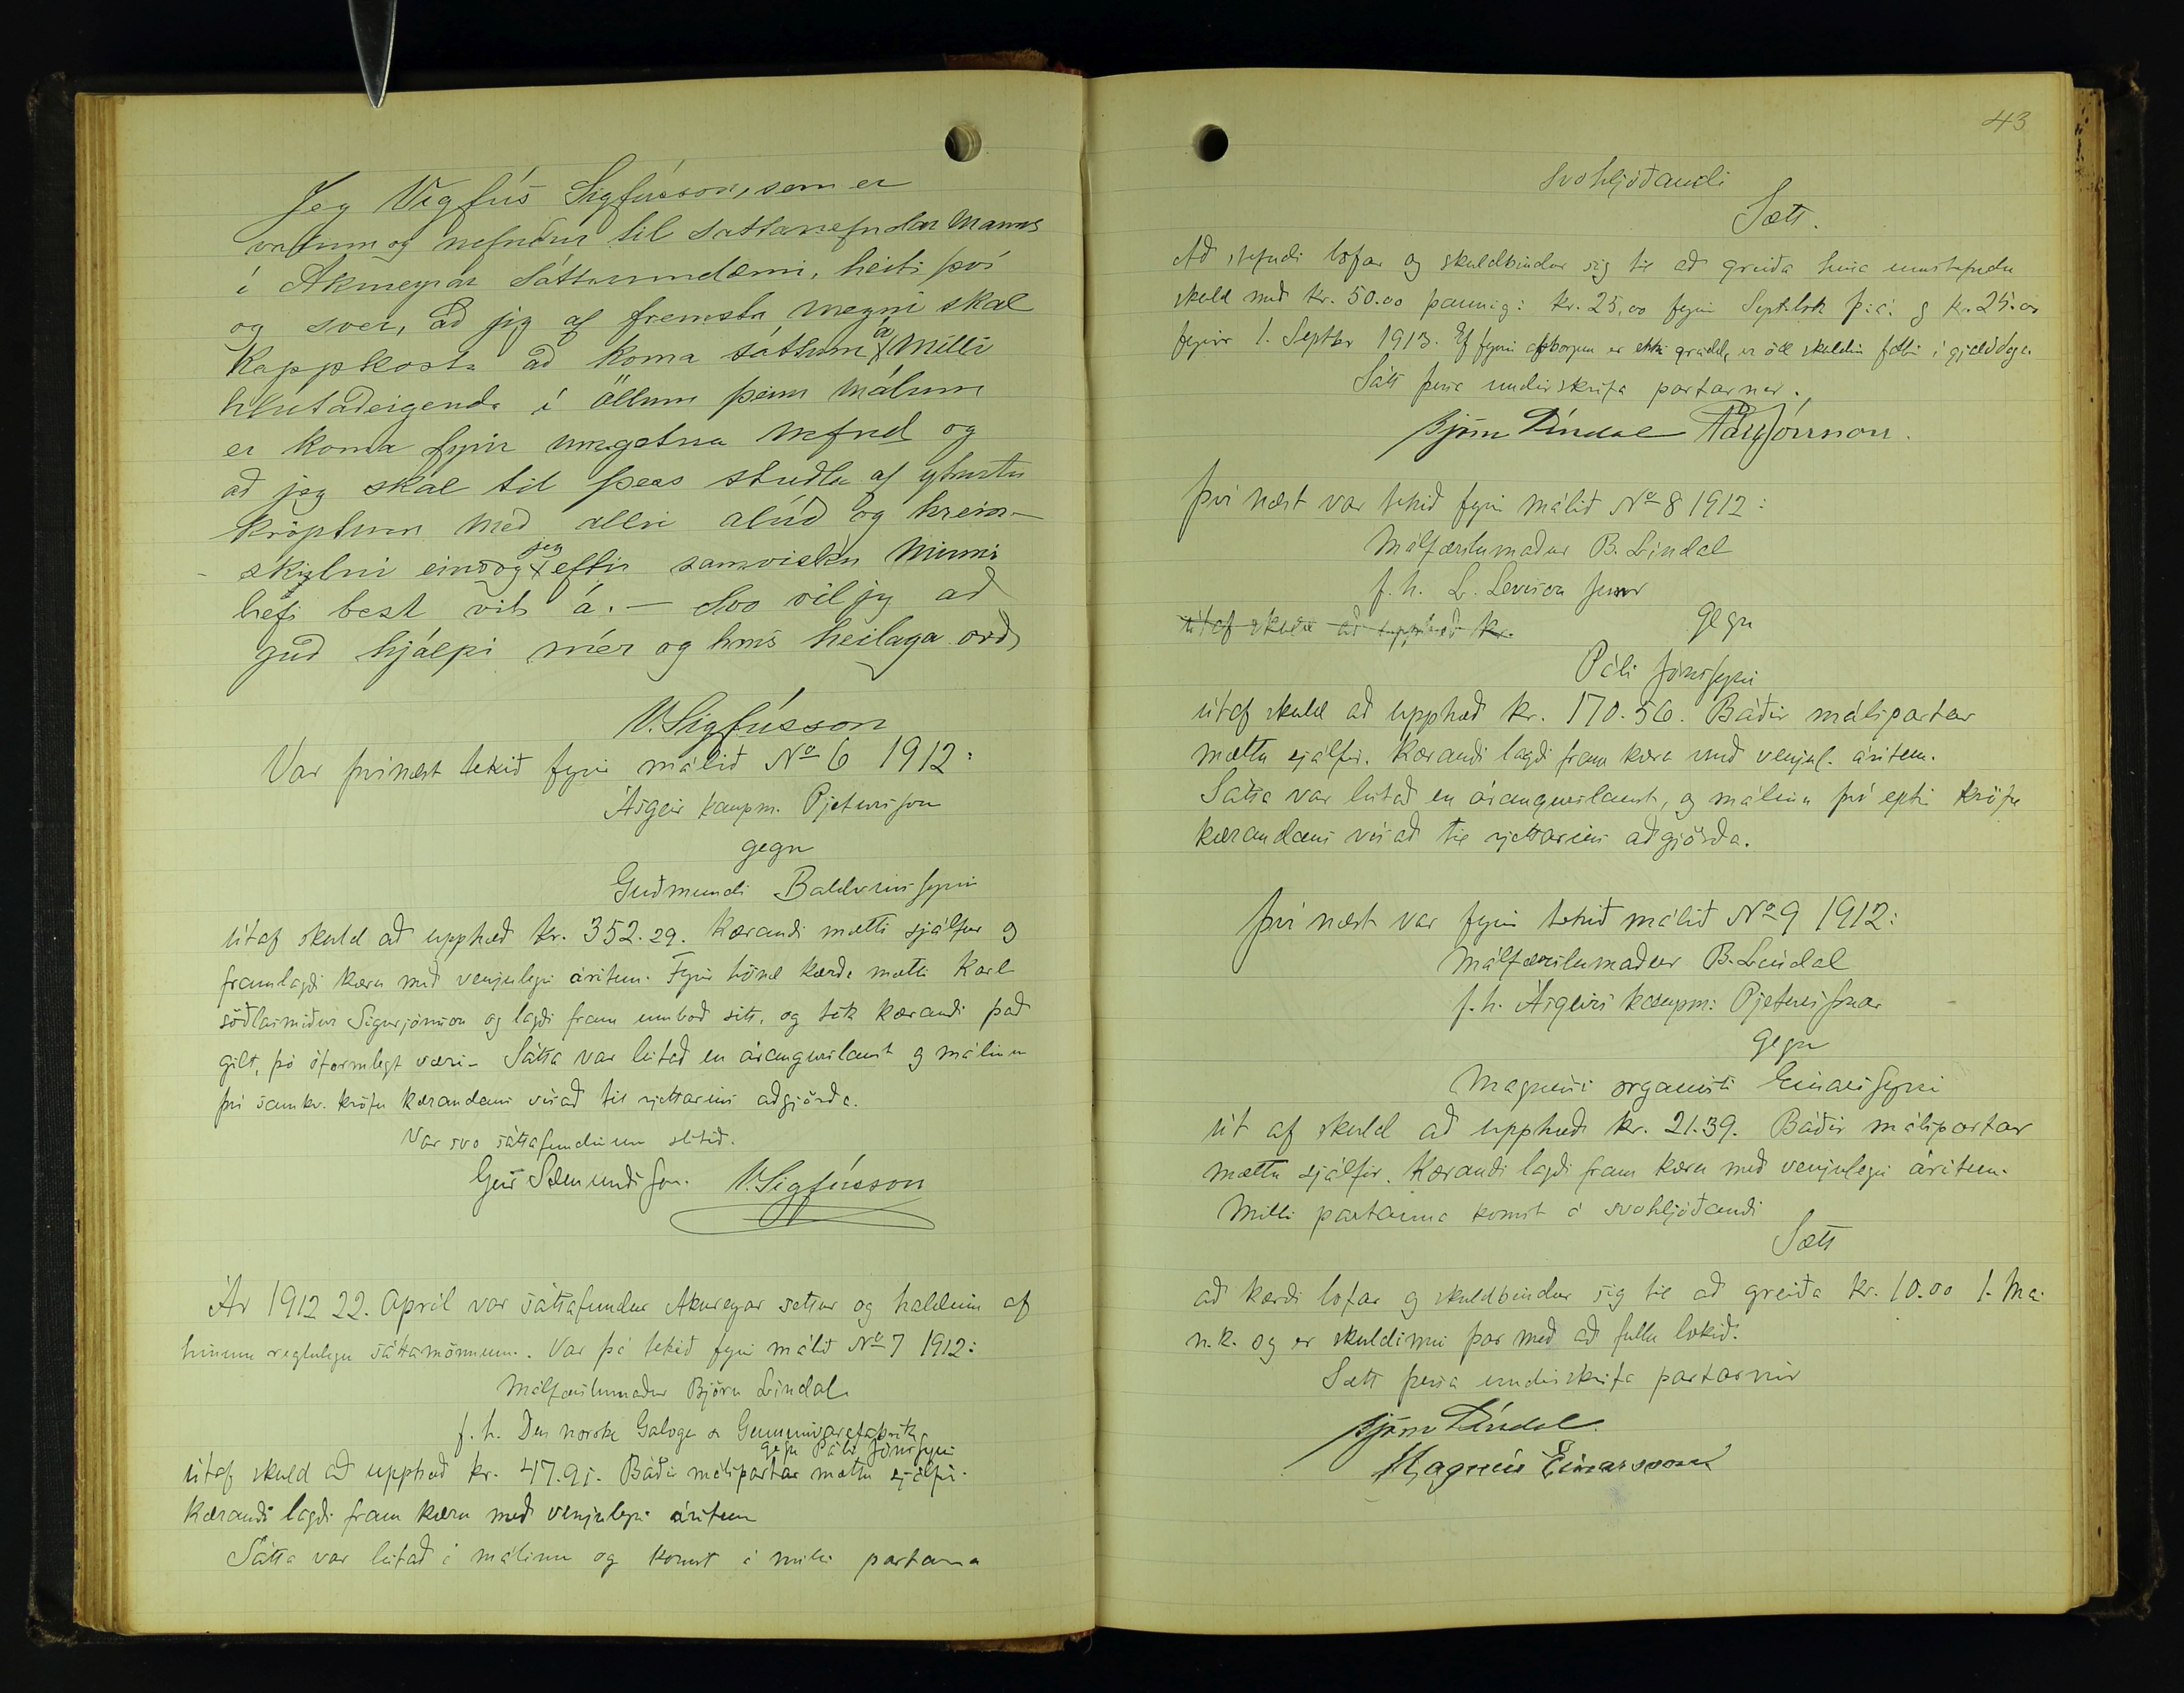 Jeg Vigfús Sigfússon, sem er
valinn og nefndur til sáttanefndar manns
í Akureyrar Sáttaumdæmi, heiti því
og sver, að jeg af fremsta megni skal
Kappkosta að koma sáttum á milli
hlutaðeigenda í öllum þeim málum
er koma fyrir umgetna nefnd og
að jeg skal til þess stuðla af ýtrustu
kröptum með allri alúð og hrein-
skilni eins og jeg eftir samvisku minni
hefi best vit á. — Svo vil jeg að
guð hjálpi mér og hans heilaga orð,
V. Sigfússon
Var þvínæst tekið fyrir málið No 6 1912:
Ásgeir kaupm. Pjetursson
gegn
Guðmundi Baldvinssyni
útaf skuld að upphæð kr. 352.29. Kærandi mætti sjálfur og
framlagði kæru með venjulegri áritun. Fyrir hönd kærða mætti Karl
söðlasmiður Sigurjónsson og lagði fram umboð sitt, og tók kærandi það
gilt, þó óformlegt væri - Sátta var leitað en árangurslaust og málinu
því samkv. kröfu kærandans vísað til rjettarins aðgjörða.
Var svo sáttafundinum slitið.
Geir Sæmundsson. V. Sigfússon
Ár 1912 22. April var sáttafundur Akureyrar settur og haldinn af
hinum reglulegu sáttamönnum. Var þá tekið fyrir málið No 7 1912:
Málfærslumaður Björn Líndal
f. h. Den norske Galoge & Gummivarefabrik
gegn Páli Jónssyni
útaf skuld að upphæð kr. 47.95. Báðir málspartar mættu sjálfir.
Kærandi lagði fram kæru með venjulegri áritun
Sátta var leitað í málinu og komst á milli partanna
43
Svohljóðandi
Sætt.
Að stefndi lofar og skuldbindur sig til að greiða hina umstefndu
skuld með kr. 50.00 þannig: kr. 25,00 fyrir Septbrlok þ. á. og kr. 25.00
fyrir 1. Septbr 1913. Ef fyrri afborgun er ekki greidd, er öll skuldin fallin í gjalddaga.
Sátt þessa underskrifa partarnir.
Björn Líndal Páll Jónsson.
Því næst var tekið fyrir málið No 8 1912:
Málfærslumaður B. Líndal
f. h. L. Levison junr
útaf skuld að upphæð kr. gegn
Páli Jónssyni
útaf skuld að upphæð kr. 170.56. Báðir málspartar
mættu sjálfir. Kærandi lagði fram kæru með venjul. áritun.
Sátta var leitað en árangurslaust, og málinu því eptir kröfu
kærandans vísað til rjettarins aðgjörða.
Því næst var fyrir tekið málið No 9 1912:
Málfærslumaður B. Líndal
f. h. Ásgeirs kaupm: Pjeturssonar
gegn
Magnúsi organista Einarssyni
út af skuld að upphæð kr. 21.39. Báðir málspartar
mættu sjálfir. Kærandi lagði fram kæru með venjulegri áritun.
Milli partanna komst á svohljóðandi
Sætt
að kærði lofar og skuldbindur sig til að greiða kr. 10.00 1. Maí
n.k. og er skuldinni þar með að fullu lokið.
Sætt þessa underskrifa partarnir
Björn Líndal.
Magnús Einarsson